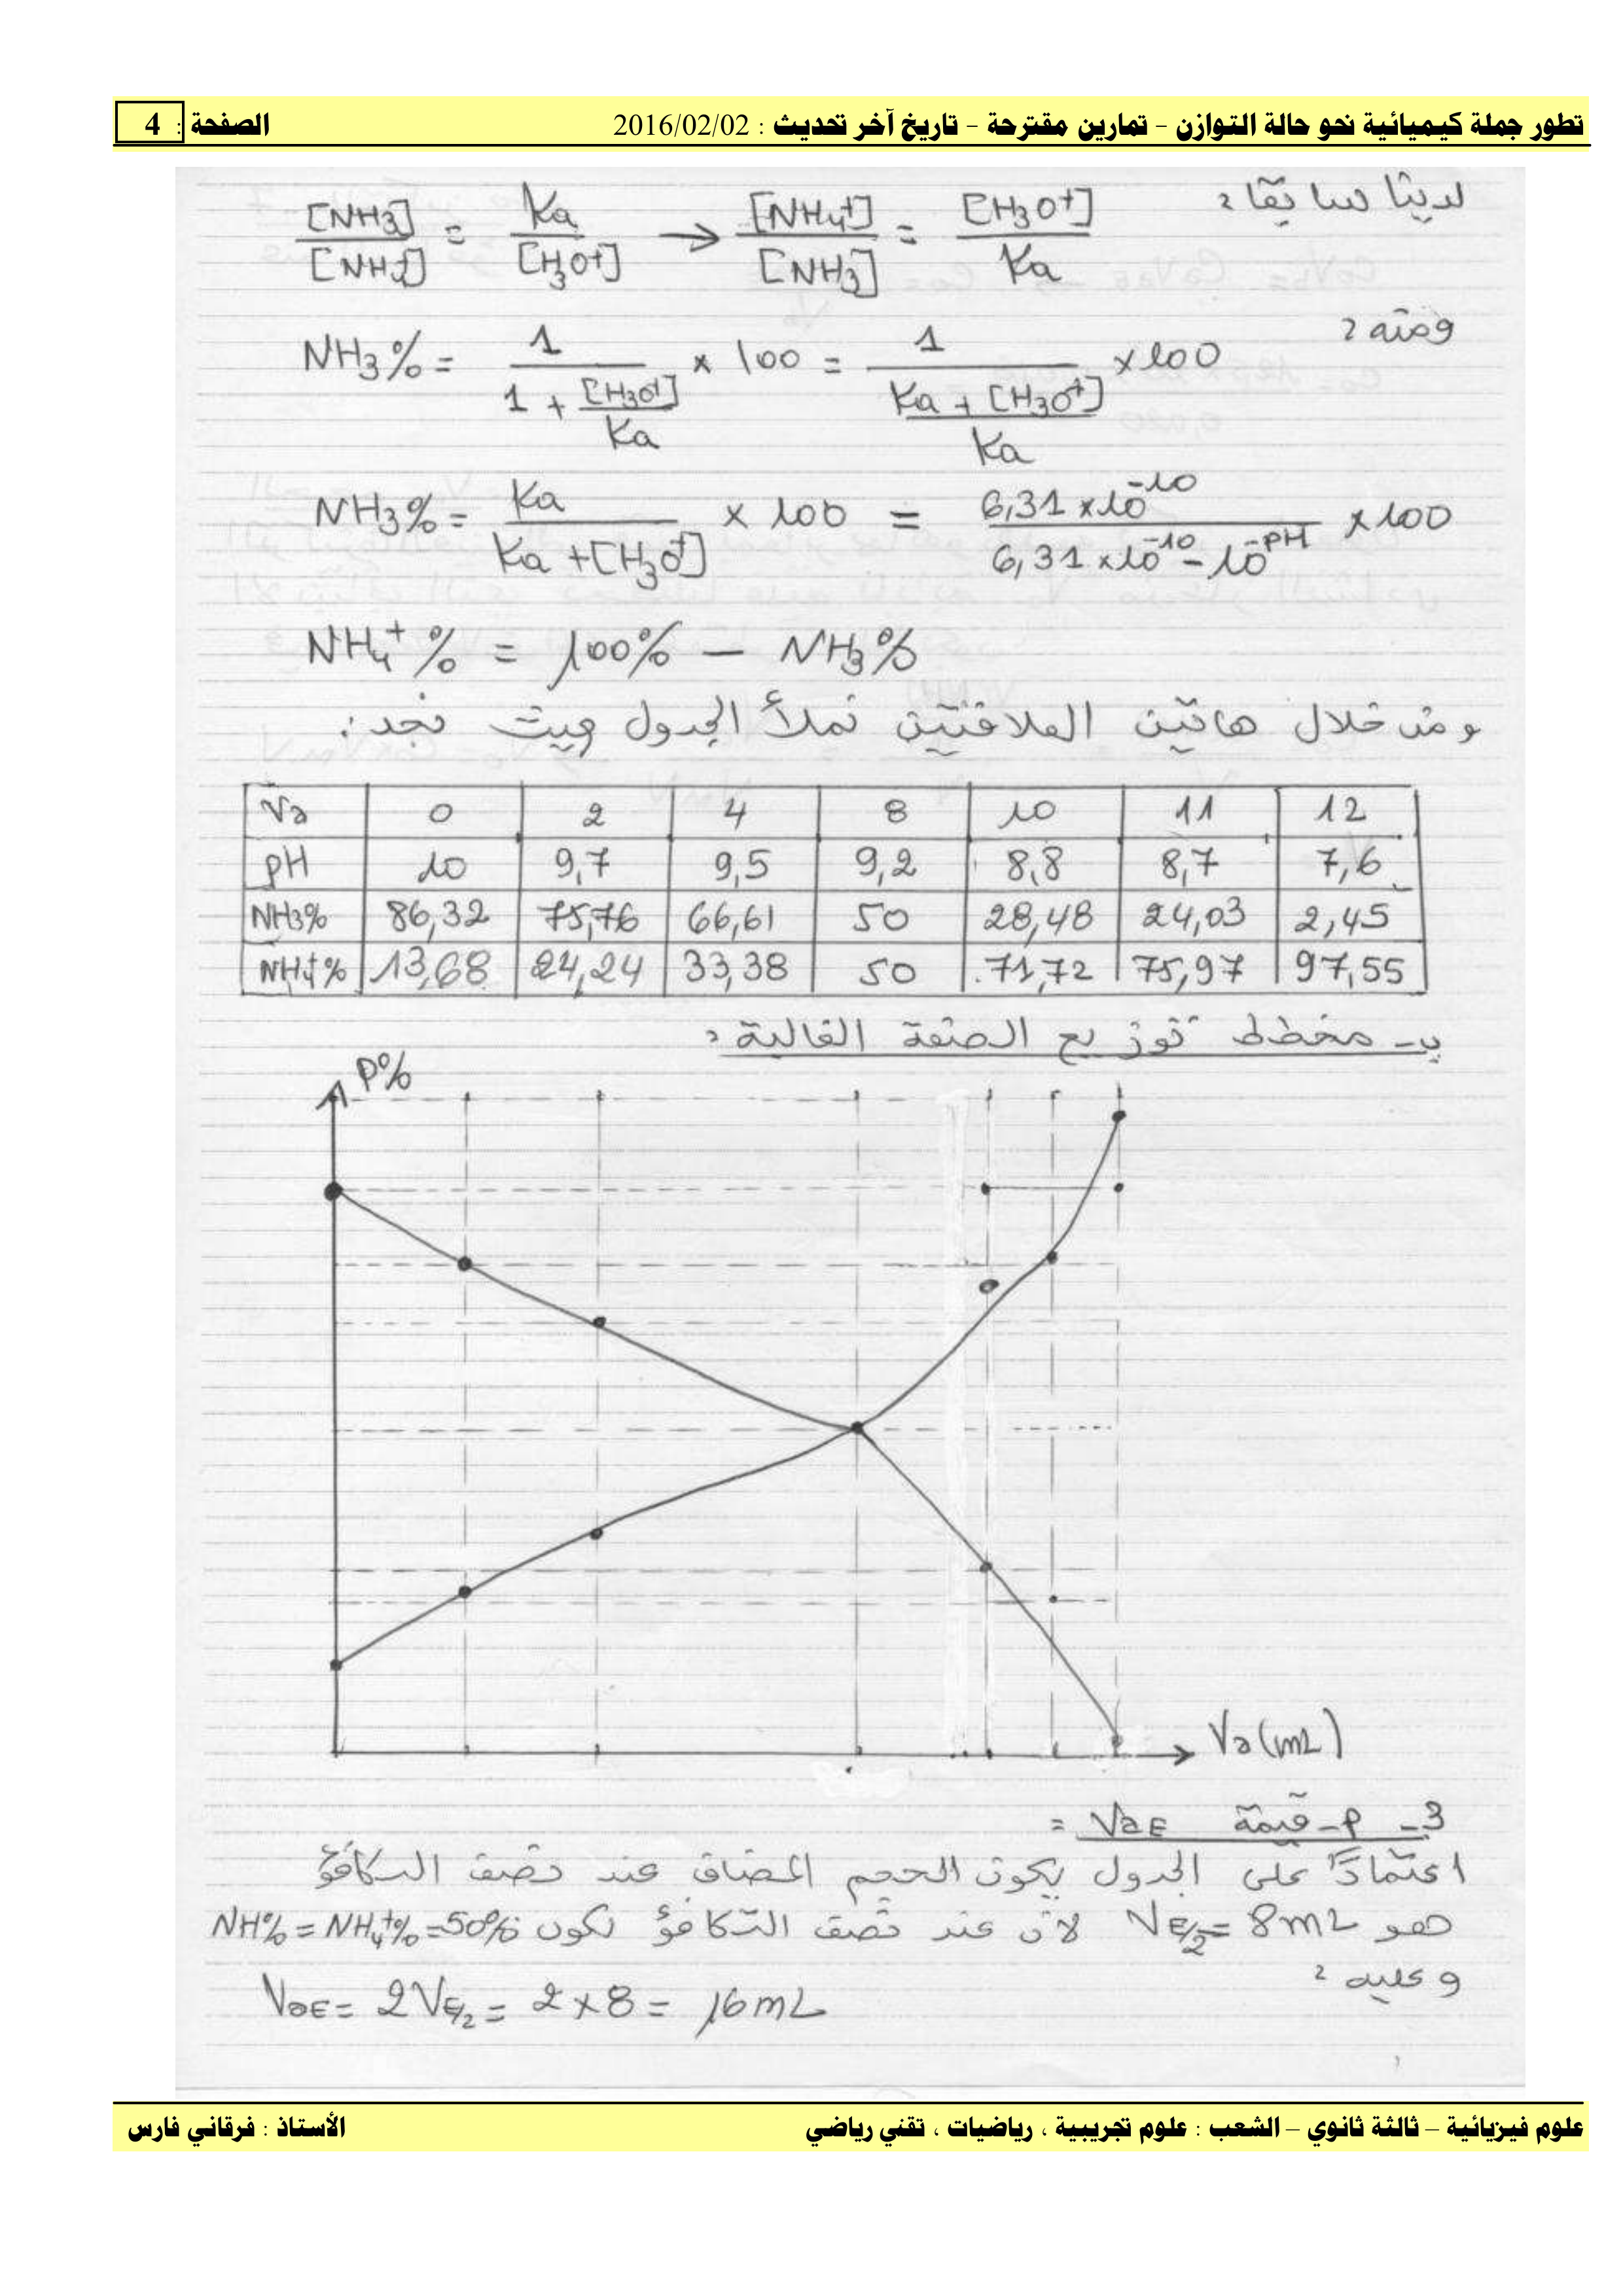 تطور جملة كيميائية نحو حالة التوازن – تمارين مقترحة – تاريخ آخر تحديث : 2016/02/02 الصفحة : 4
لدينا سابقا :
[NH3]/[NH4+] = Ka/[H3O+] → [NH4+]/[NH3] = [H3O+]/Ka
ومنه :
NH3% = 1/(1 + [H3O+]/Ka) × 100 = 1/((Ka + [H3O+])/Ka) × 100
NH3% = Ka/(Ka + [H3O+]) × 100 = 6,31 × 10^-10/(6,31 × 10^-10 - 10^-PH) × 100
NH4+% = 100% – NH3%
و من خلال هاتين العلاقتين نملأ الجدول حيث نجد :
Va 0 2 4 8 10 11 12
pH 10 9,7 9,5 9,2 8,8 8,7 7,6
NH3% 86,32 75,76 66,61 50 28,48 24,03 2,45
NH4+% 13,68 24,24 33,38 50 71,72 75,97 97,55
ب- مخطط توزيع الصفة الغالبة :
P%
Va(mL)
3- أ- قيمة VaE :
اعتمادًا على الجدول يكون الحجم المضاف عند نصف التكافؤ
هو VE/2 = 8mL لأن عند نصف التكافؤ تكون NH% = NH4+% = 50%
و عليه :
VaE = 2VE/2 = 2 × 8 = 16mL
علوم فيزيائية – ثالثة ثانوي – الشعب : علوم تجريبية ، رياضيات ، تقني رياضي الأستاذ : فرقاني فارس